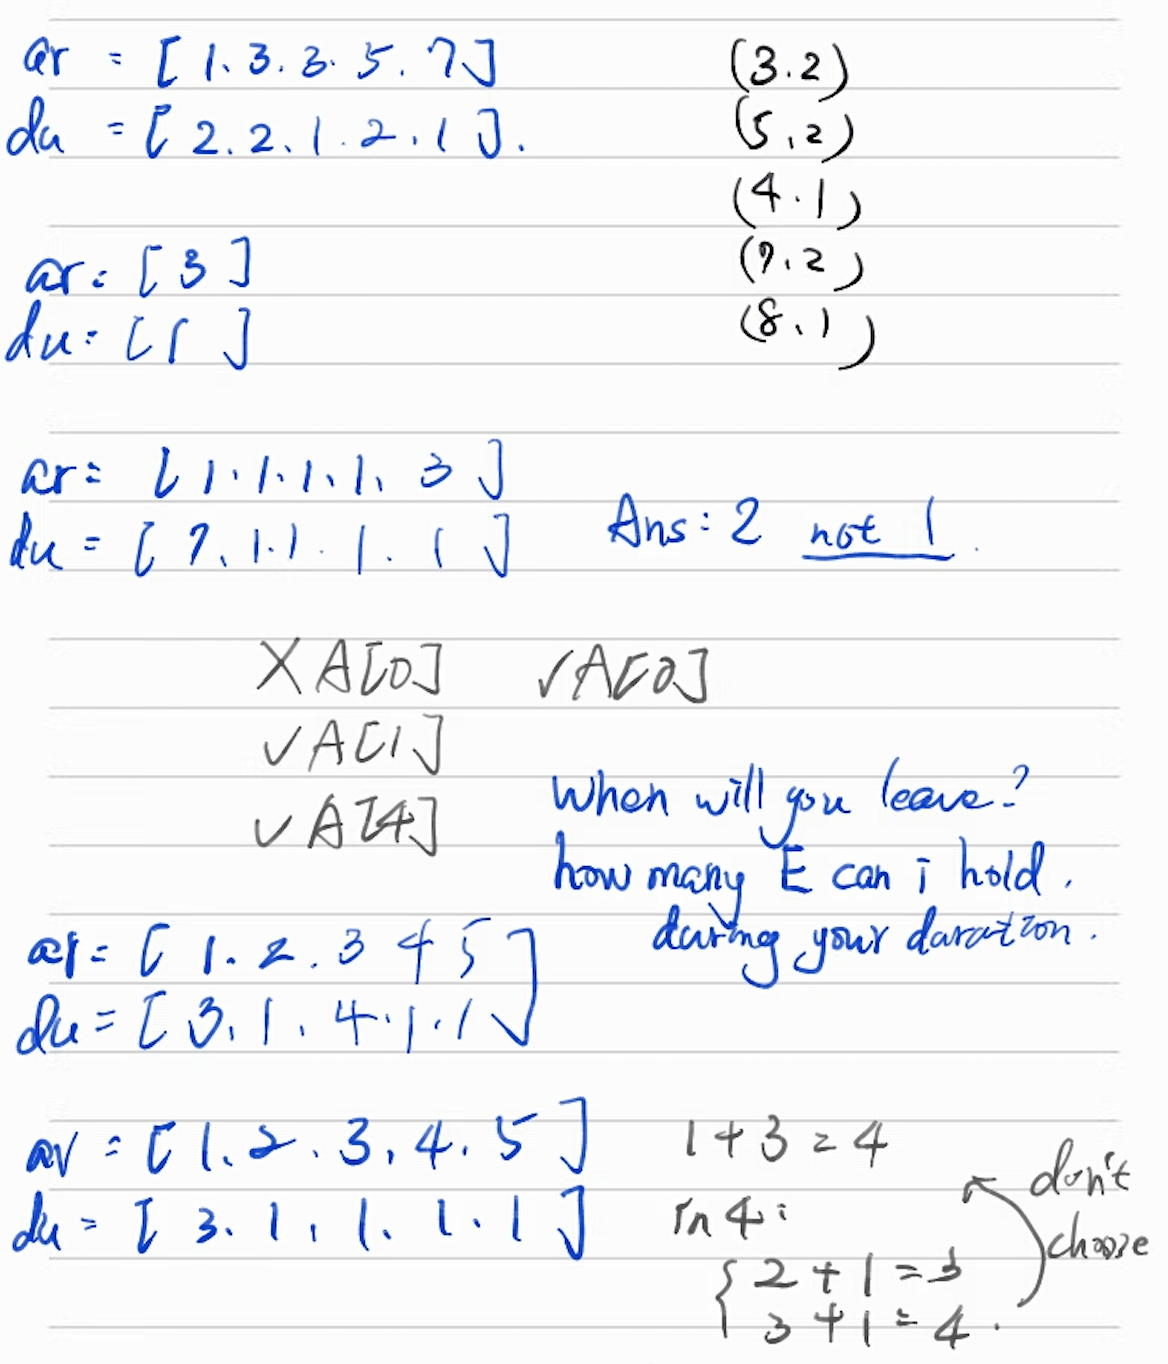 ar = [ 1. 3. 3. 5. 7]
du = [ 2. 2. 1. 2. 1 ].
(3.2)
(5,2)
(4.1)
(7.2)
(8.1)
ar = [ 3 ]
du = [ 1 ]
ar = [ 1. 1. 1. 1. 3 ]
du = [ 7. 1. 1. 1. 1 ]
Ans: 2 not 1.
X A[0]
√ A[1]
√ A[4]
√ A[0]
When will you leave?
how many E can i hold.
during your daration.
ar = [ 1. 2. 3 4 5 ]
du = [ 3. 1. 4. 1. 1 ]
ar = [ 1. 2. 3. 4. 5 ]
du = [ 3. 1. 1. 1. 1 ]
1 + 3 = 4
in 4:
{ 2 + 1 = 3
3 + 1 = 4.
don't
choose